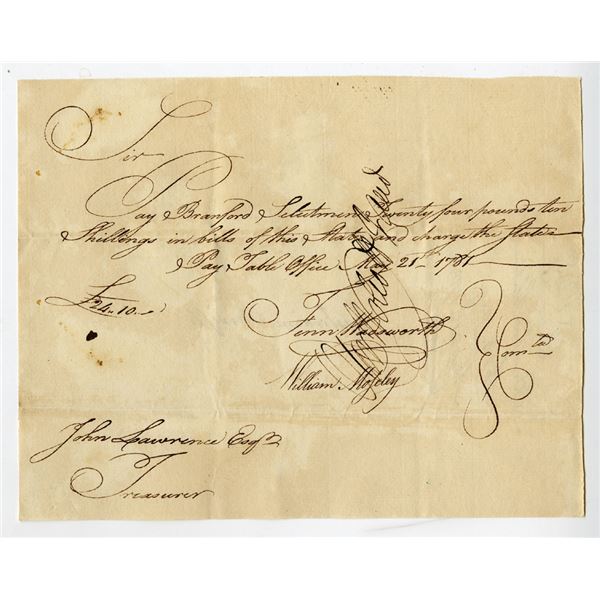 Sir
Pay Branford Selectmen Twenty four pounds ten
Shillings in bills of this State and charge the State
Pay Table Office May 21st 1781
£24.10.-
Fenn Wadsworth
William Moseley
Comtee
John Lawrence Esqr
Treasurer